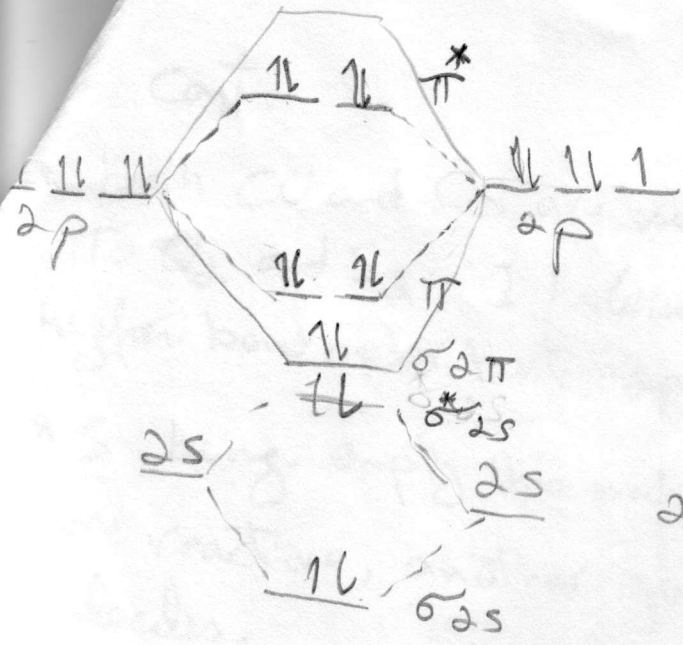 π*
2p 2p
π
σ2π
σ*2s
2s
2s
2
σ2s